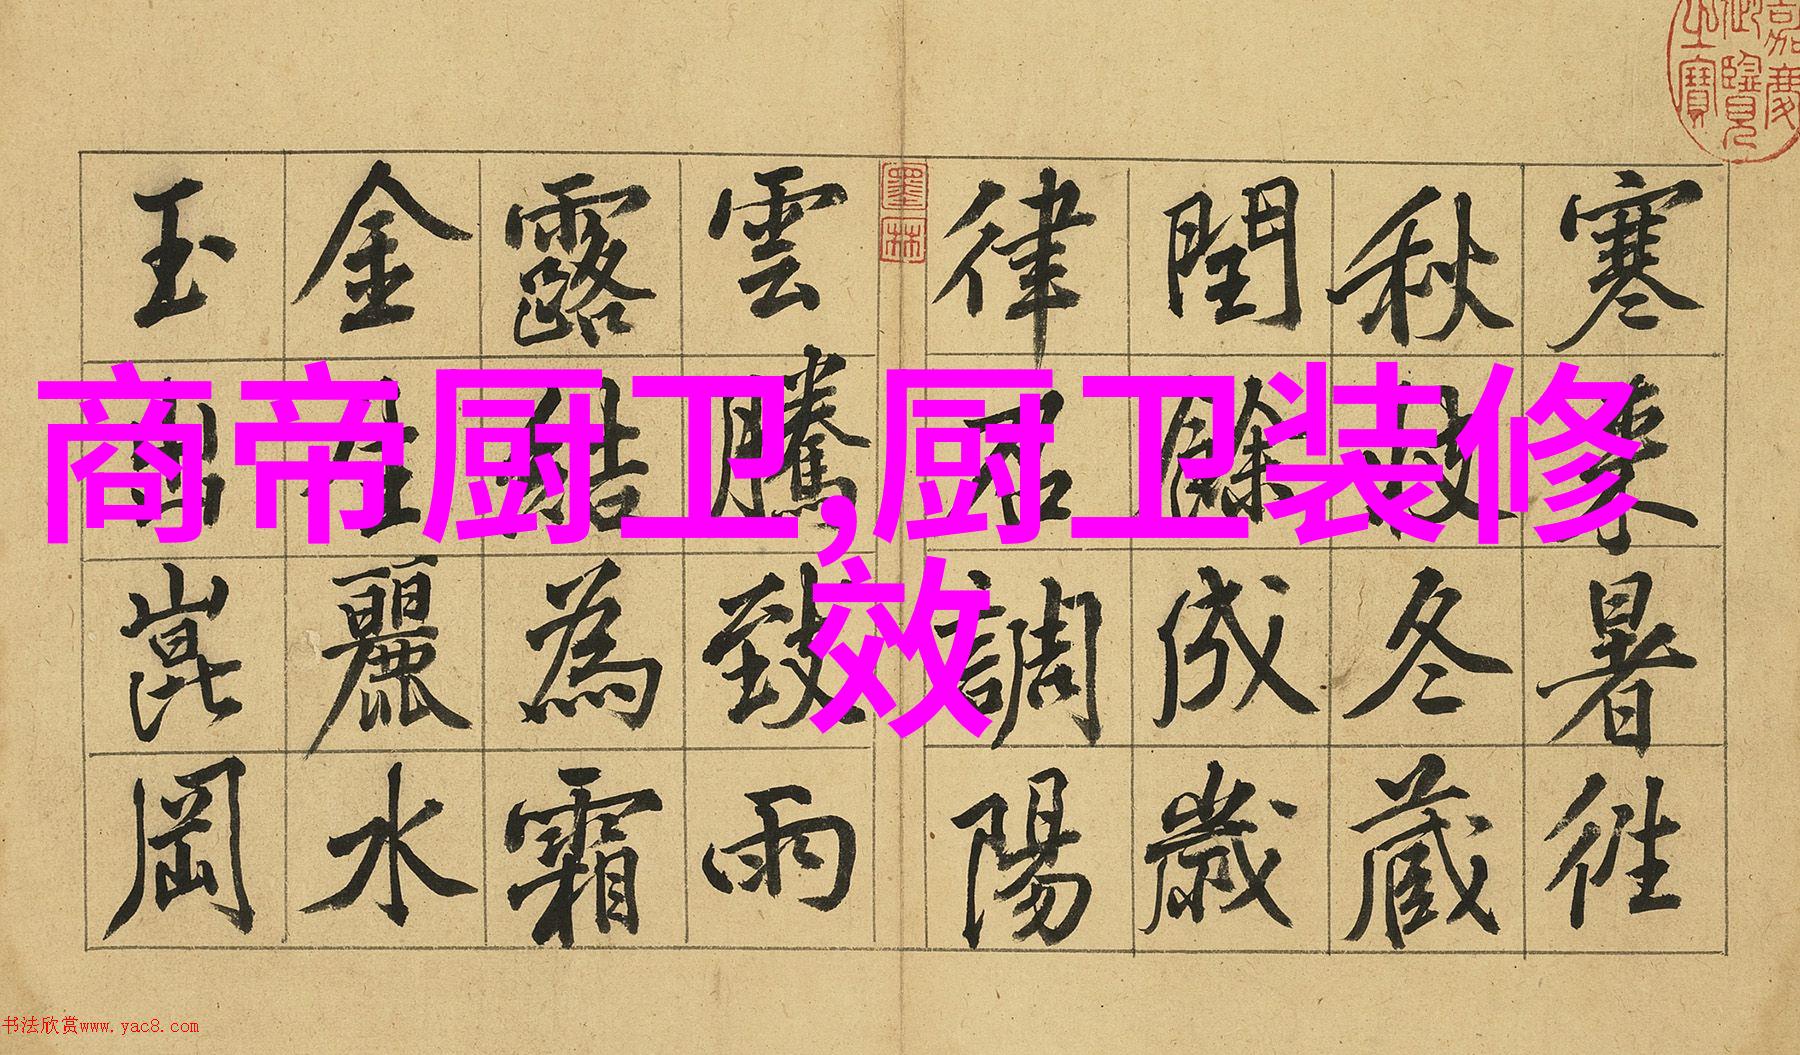 嘉慶御覽之寶
寒來暑往
秋收冬藏
閏餘成歲
律調陽
墨林
雲騰致雨
露結為霜
金生麗水
玉出崑岡
商帝厨卫,厨卫装修
效
书法欣赏www.yac8.com